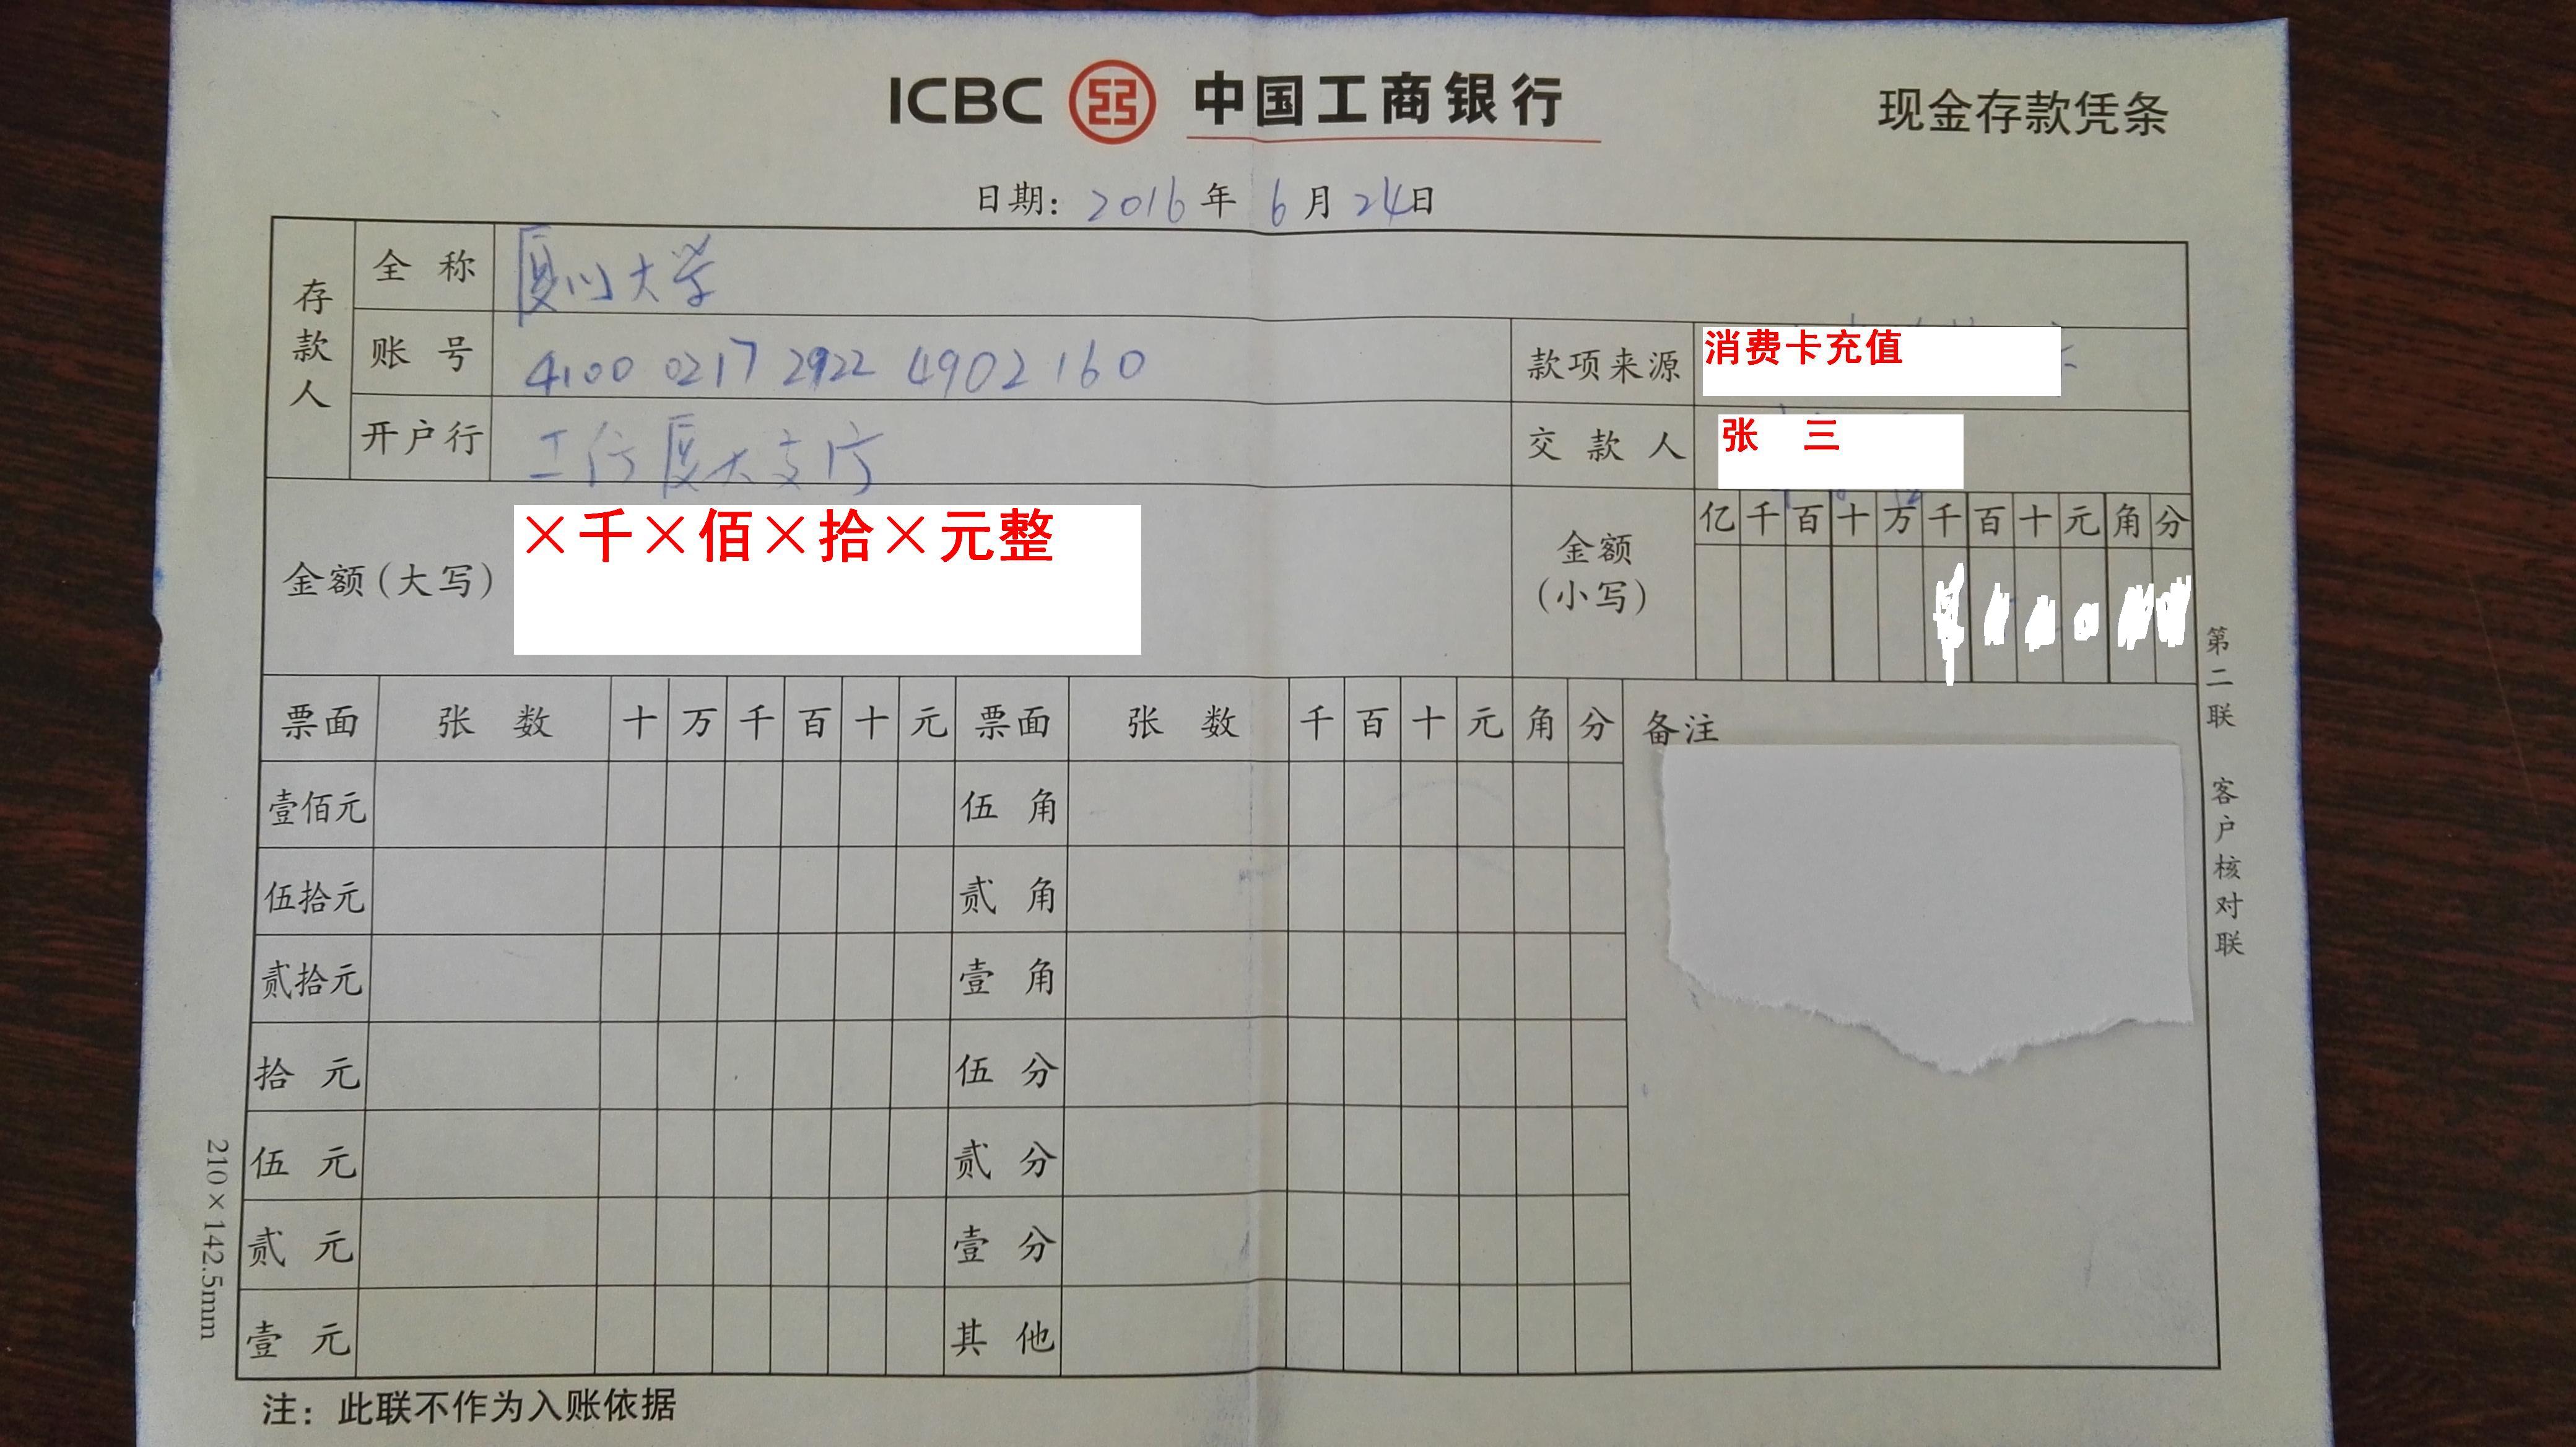 ICBC 中国工商银行
现金存款凭条
日期: 2016年 6月 24日
存款人
全 称 厦门大学
账 号 4100 0217 2922 4902 160
款项来源 消费卡充值
开户行 工行厦大支行
交 款 人 张 三
金额(大写) ×千×佰×拾×元整
金额(小写)
亿 千 百 十 万 千 百 十 元 角 分
票面 张 数 十 万 千 百 十 元 票面 张 数 千 百 十 元 角 分 备注
壹佰元 伍 角
伍拾元 贰 角
贰拾元 壹 角
拾 元 伍 分
伍 元 贰 分
贰 元 壹 分
壹 元 其 他
第二联 客户核对联
210×142.5mm
注: 此联不作为入账依据